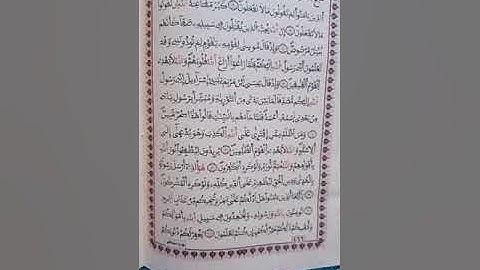 الَّذِينَ ءَامَنُوا لِمَ تَقُولُونَ مَا لَا تَفْعَلُونَ كَبُرَ مَقْتًا عِندَ اللَّهِ أَن تَقُولُوا
مَا لَا تَفْعَلُونَ إِنَّ اللَّهَ يُحِبُّ الَّذِينَ يُقَاتِلُونَ فِي سَبِيلِهِ صَفًّا كَأَنَّهُم
بُنْيَانٌ مَّرْصُوصٌ وَإِذْ قَالَ مُوسَى لِقَوْمِهِ يَاقَوْمِ لِمَ تُؤْذُونَنِي وَقَد
تَّعْلَمُونَ أَنِّي رَسُولُ اللَّهِ إِلَيْكُمْ فَلَمَّا زَاغُوا أَزَاغَ اللَّهُ قُلُوبَهُمْ وَاللَّهُ لَا يَهْدِي
الْقَوْمَ الْفَاسِقِينَ وَإِذْ قَالَ عِيسَى ابْنُ مَرْيَمَ يَابَنِي إِسْرَائِيلَ إِنِّي رَسُولُ
اللَّهِ إِلَيْكُم مُّصَدِّقًا لِّمَا بَيْنَ يَدَيَّ مِنَ التَّوْرَاةِ وَمُبَشِّرًا بِرَسُولٍ يَأْتِي
مِن بَعْدِي اسْمُهُ أَحْمَدُ فَلَمَّا جَاءَهُم بِالْبَيِّنَاتِ قَالُوا هَذَا سِحْرٌ مُّبِينٌ
وَمَنْ أَظْلَمُ مِمَّنِ افْتَرَى عَلَى اللَّهِ الْكَذِبَ وَهُوَ يُدْعَى إِلَى
الْإِسْلَامِ وَاللَّهُ لَا يَهْدِي الْقَوْمَ الظَّالِمِينَ يُرِيدُونَ لِيُطْفِئُوا نُورَ اللَّهِ
بِأَفْوَاهِهِمْ وَاللَّهُ مُتِمُّ نُورِهِ وَلَوْ كَرِهَ الْكَافِرُونَ هُوَ الَّذِي أَرْسَلَ رَسُولَهُ
بِالْهُدَى وَدِينِ الْحَقِّ لِيُظْهِرَهُ عَلَى الدِّينِ كُلِّهِ وَلَوْ كَرِهَ الْمُشْرِكُونَ
يَاأَيُّهَا الَّذِينَ ءَامَنُوا هَلْ أَدُلُّكُمْ عَلَى تِجَارَةٍ تُنجِيكُم مِّنْ عَذَابٍ أَلِيمٍ
تُؤْمِنُونَ بِاللَّهِ وَرَسُولِهِ وَتُجَاهِدُونَ فِي سَبِيلِ اللَّهِ بِأَمْوَالِكُمْ
وَأَنفُسِكُمْ ذَلِكُمْ خَيْرٌ لَّكُمْ إِن كُنتُمْ تَعْلَمُونَ يَغْفِرْ لَكُمْ ذُنُوبَكُمْ